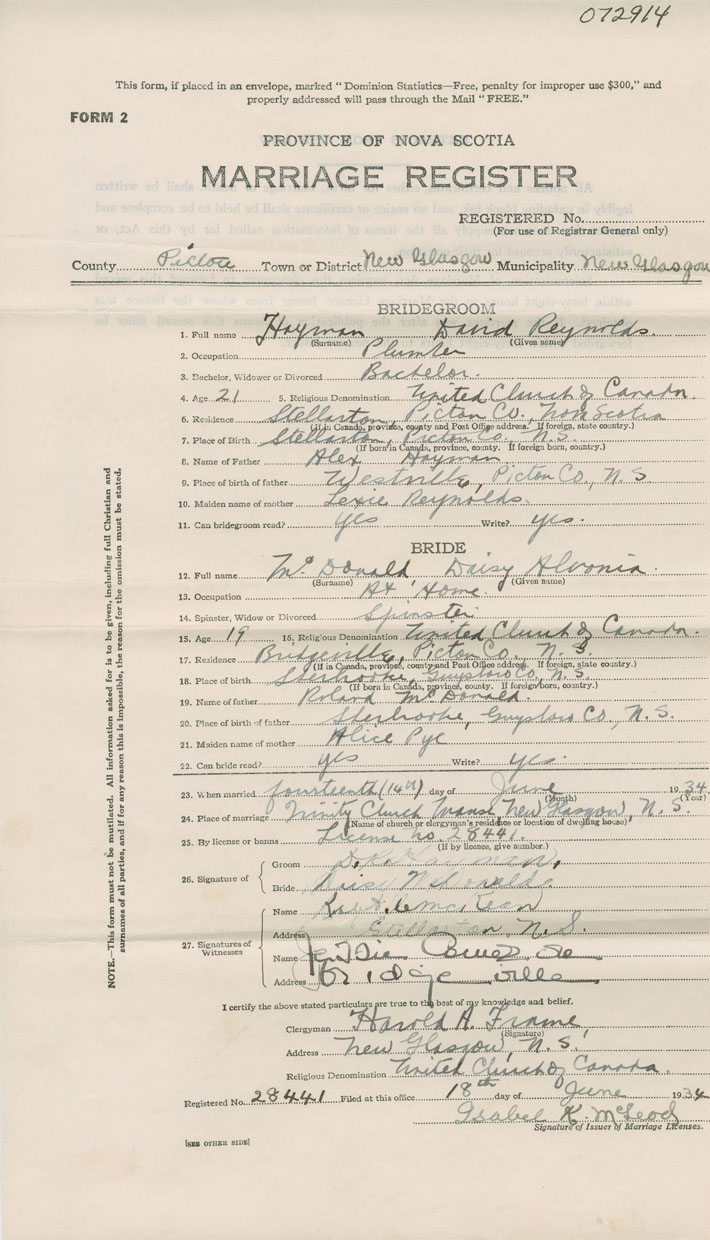 072914
This form, if placed in an envelope, marked "Dominion Statistics—Free, penalty for improper use $300," and
properly addressed will pass through the Mail "FREE."
FORM 2
PROVINCE OF NOVA SCOTIA
MARRIAGE REGISTER
REGISTERED No.
(For use of Registrar General only)
County Pictou Town or District New Glasgow Municipality New Glasgow
BRIDEGROOM
1. Full name Hayman David Reynolds.
(Surname) (Given name)
2. Occupation Plumber
3. Bachelor, Widower or Divorced Bachelor.
4. Age 21 5. Religious Denomination United Church of Canada.
6. Residence Stellarton, Pictou Co., Nova Scotia
(If in Canada, province, county and Post Office address. If foreign, state country.)
7. Place of Birth Stellarton, Pictou Co., N.S.
(If born in Canada, province, county. If foreign born, country.)
8. Name of Father Alex Hayman
9. Place of birth of father Westville, Pictou Co., N.S
10. Maiden name of mother Lexie Reynolds.
11. Can bridegroom read? yes Write? yes.
BRIDE
12. Full name McDonald Daisy Alvonia.
(Surname) (Given name)
13. Occupation At Home.
14. Spinster, Widow or Divorced Spinster
15. Age 19 16. Religious Denomination United Church of Canada.
17. Residence Bridgeville, Pictou Co., N.S.
(If in Canada, province, county and Post Office address. If foreign, state country.)
18. Place of birth Sherbrooke, Guysboro Co., N.S.
(If born in Canada, province, county. If foreign born, country.)
19. Name of father Roland McDonald.
20. Place of birth of father Sherbrooke, Guysboro Co., N.S.
21. Maiden name of mother Alice Pye
22. Can bride read? yes Write? yes.
23. When married fourteenth (14th) day of June 1934
(Month) (Year)
24. Place of marriage Trinity Church Manse, New Glasgow, N.S.
(Name of church or clergyman's residence or location of dwelling house)
25. By license or banns License no. 28441.
(If by licence, give number.)
26. Signature of
Groom
Bride
27. Signatures of
Witnesses
Name
Address Stellarton, N.S.
Name
Address Bridgeville
I certify the above stated particulars are true to the best of my knowledge and belief.
Clergyman Harold A. Frame,
(Signature)
Address New Glasgow, N.S.
Religious Denomination United Church of Canada.
Registered No. 28441 Filed at this office 18th day of June 1934
Isabel K. McLeod
Signature of Issuer of Marriage Licenses.
[SEE OTHER SIDE]
NOTE.—This form must not be mutilated. All information asked for is to be given, including full Christian and
surnames of all parties, and if for any reason this is impossible, the reason for the omission must be stated.